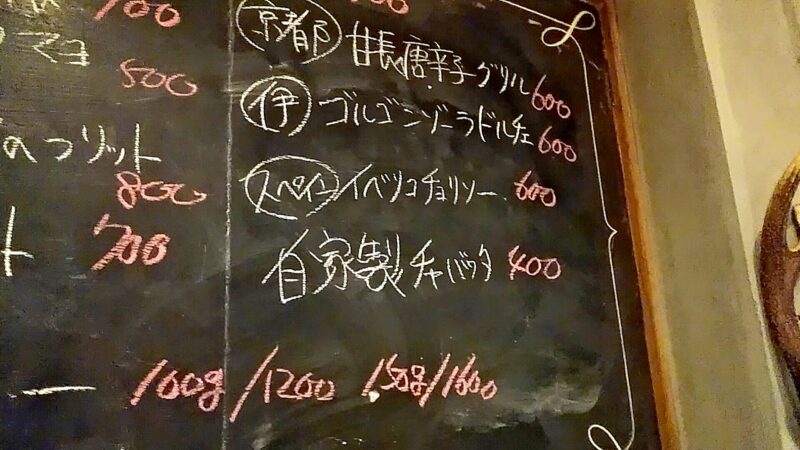 700
マヨ
500
のつリゾット
800
ト 700
ー 100g/1200 150g/1600
京都 甘長唐辛子グリル 600
伊 ゴルゴンゾーラドルチェ 600
スペイン イベリコチョリソー 600
自家製チャバッタ 400